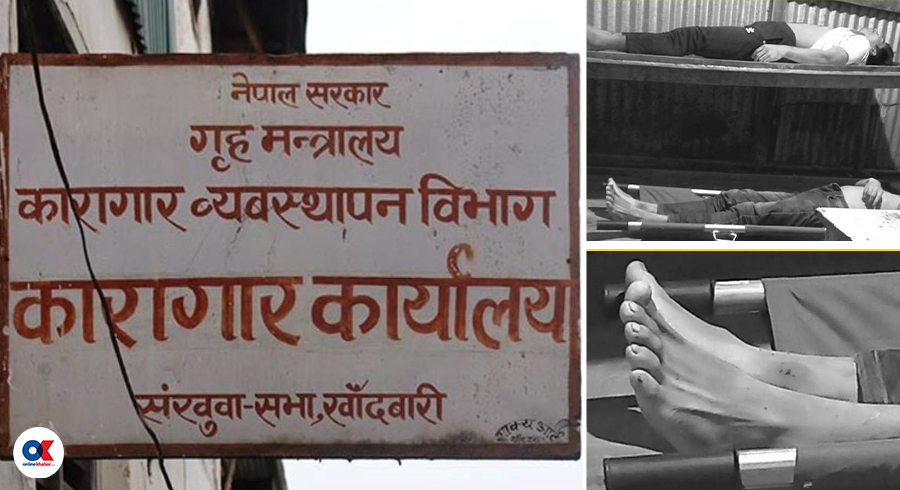 नेपाल सरकार
गृह मन्त्रालय
कारागार व्यबस्थापन विभाग
कारागार कार्यालय
संखुवा-सभा,खाँदबारी
onlinekhabar